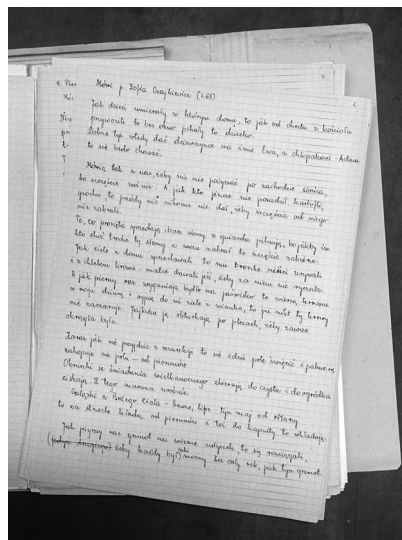 5.
5. Pier
Mówi p. Zofia Czajkiewicz (l. 65)
2.
Jak dzieci umierały w którym domu, to jak od chrztu z kościoła
przynieśli to bez okno pchały to dziecko.
Dobrze tyż wtedy dać dziewczynce na imie Ewa, a chłopakowi - Adam
to sie bedo chować.
Mówio tak u nas, żeby nic nie pożyczać po zachodzie słońca,
bo szczęście zginie. A jak kto jeszcze nie posadził kartofli,
grochu, to prędzy nic nikomu nie dać, żeby szczęścia od niego
nie zabrali.
Te, co prosięta sprzedają i bars słomy z gniazda pilnują, bo jakby im
kto choć trochę ty słomy z woru zabrał to szczęście zabierze.
Jak ciele z domu sprzedawali to mu troszke sierści urywali
i z chlebem krowie - matce dawali jeść, żeby za nim nie ryczała.
A jak pierwszy raz wyganiają bydło na pastwisko to wiążą kromnie
w rogu dziury i sypią do ni ziele z wianka, to już nikt ty krowy
nie zauroczy. Jajkiem je obtuskają po plecach, żeby zawsze
okrągła była.
Zaraz jak sie przyjdzie z rezurekcji to sie idzie pole święcić i palme sie
zakopuje na polu - od piorunów.
Okruszki ze śniadania wielkanocnego zbierają do czysta i do ogródka
ciskają. Z tego maruna urośnie.
Gałązki z Bożego Ciała - brzozo, lipe - tyu mają od ołtarzy
to na strzechę kładą, od piorunów i też do kapusty to wkładają.
Jak pierszy raz grzmot na wiosne usłyszeli, to się rozciągali,
żeby twardy być i mocny bez cały rok, jak tyn grzmot.